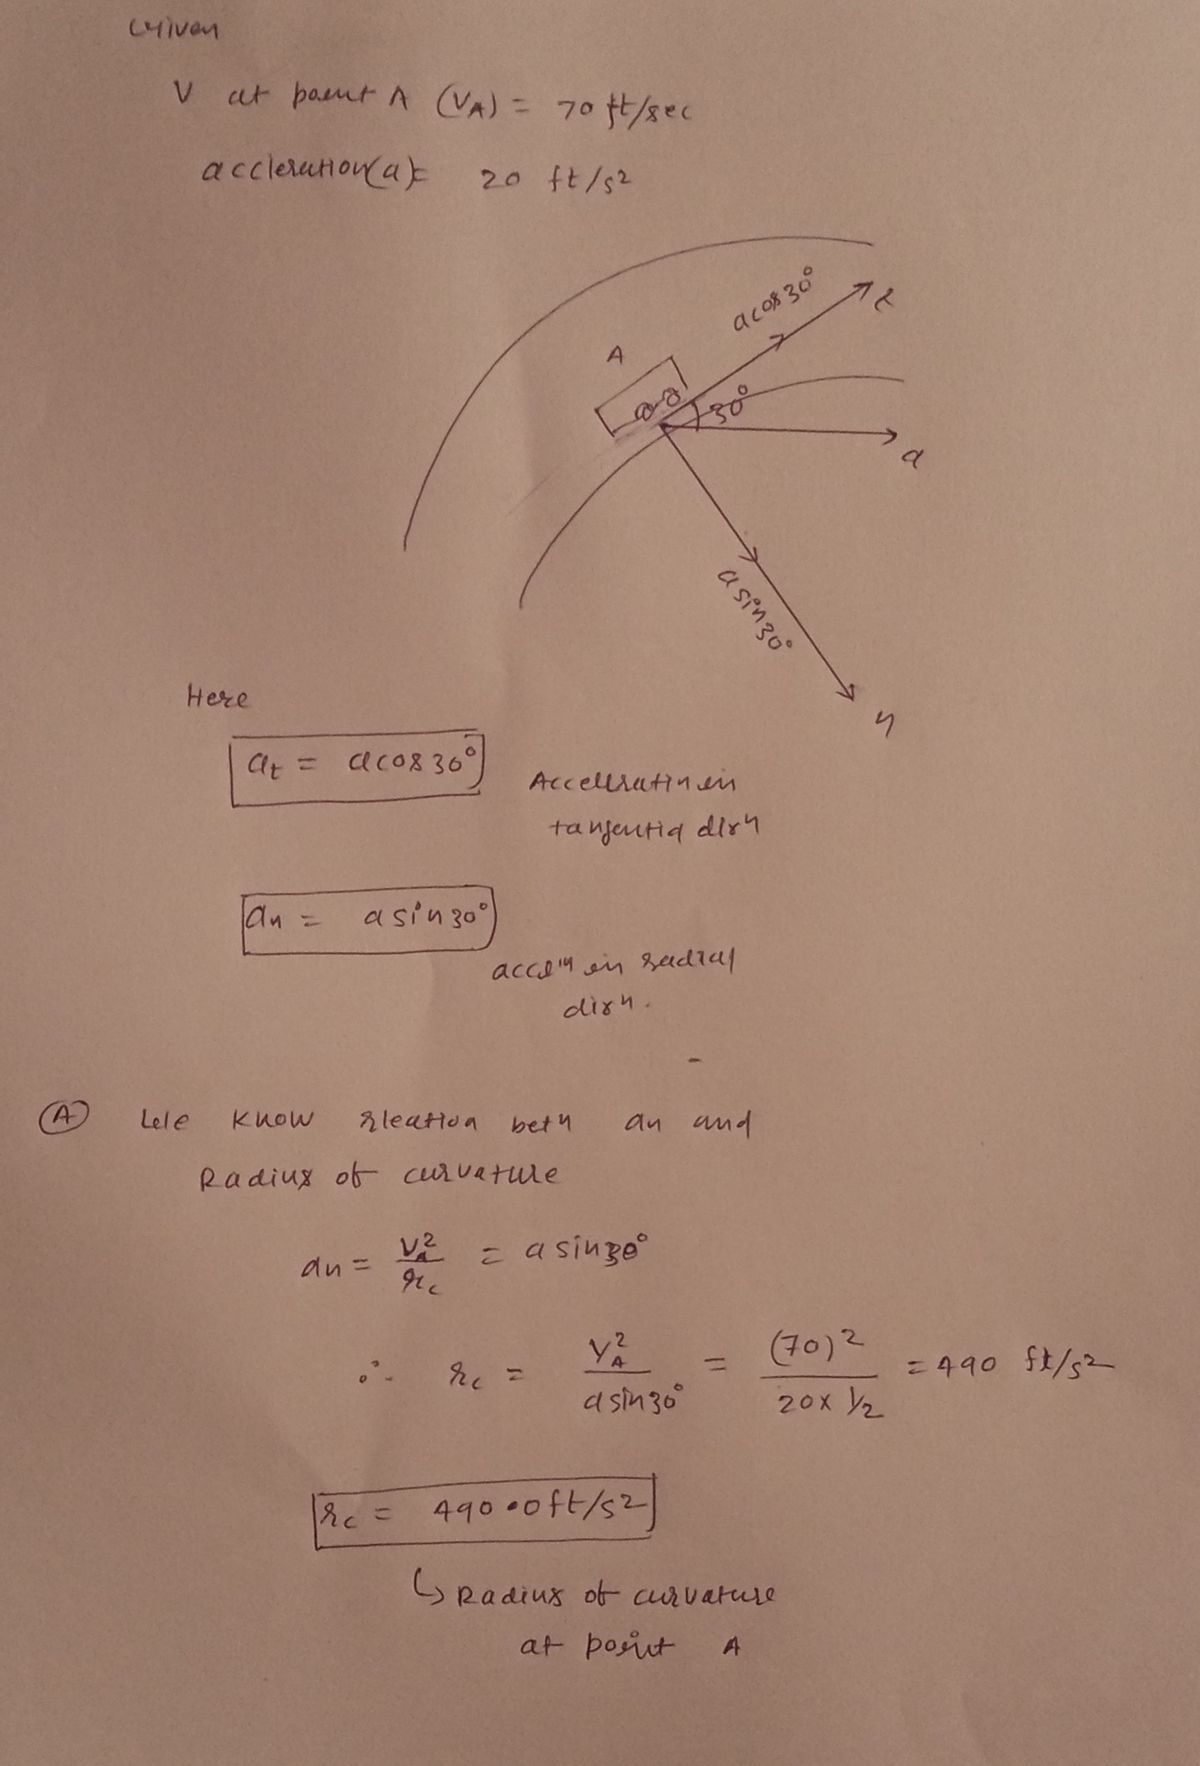 Given
V at point A (VA) = 70 ft/sec
accleration(a) = 20 ft/s2
acos30°
t
A
30°
a
asin30°
n
Here
at = acos30°
Acceleratin in
tangential dirn
an = asin30°
acceln in radial
dirn.
(A) We know rleation betn an and
Radius of curvature
an = VA2/rc = asin30°
∴ rc = VA2/asin30° = (70)2/20x1/2 = 490 ft/s2
rc = 490.0ft/s2
↳ Radius of curvature
at point A